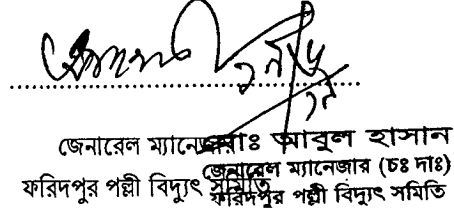 জেনারেল ম্যানেজার
ফরিদপুর পল্লী বিদ্যুৎ সমিতি
মোঃ আবুল হাসান
জেনারেল ম্যানেজার (চঃ দাঃ)
ফরিদপুর পল্লী বিদ্যুৎ সমিতি